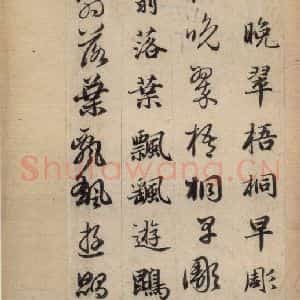 晚翠梧桐早彫
晚翠梧桐早彫
落葉飄颻遊鵾
落葉飄颻遊鵾
Shufawang.CN